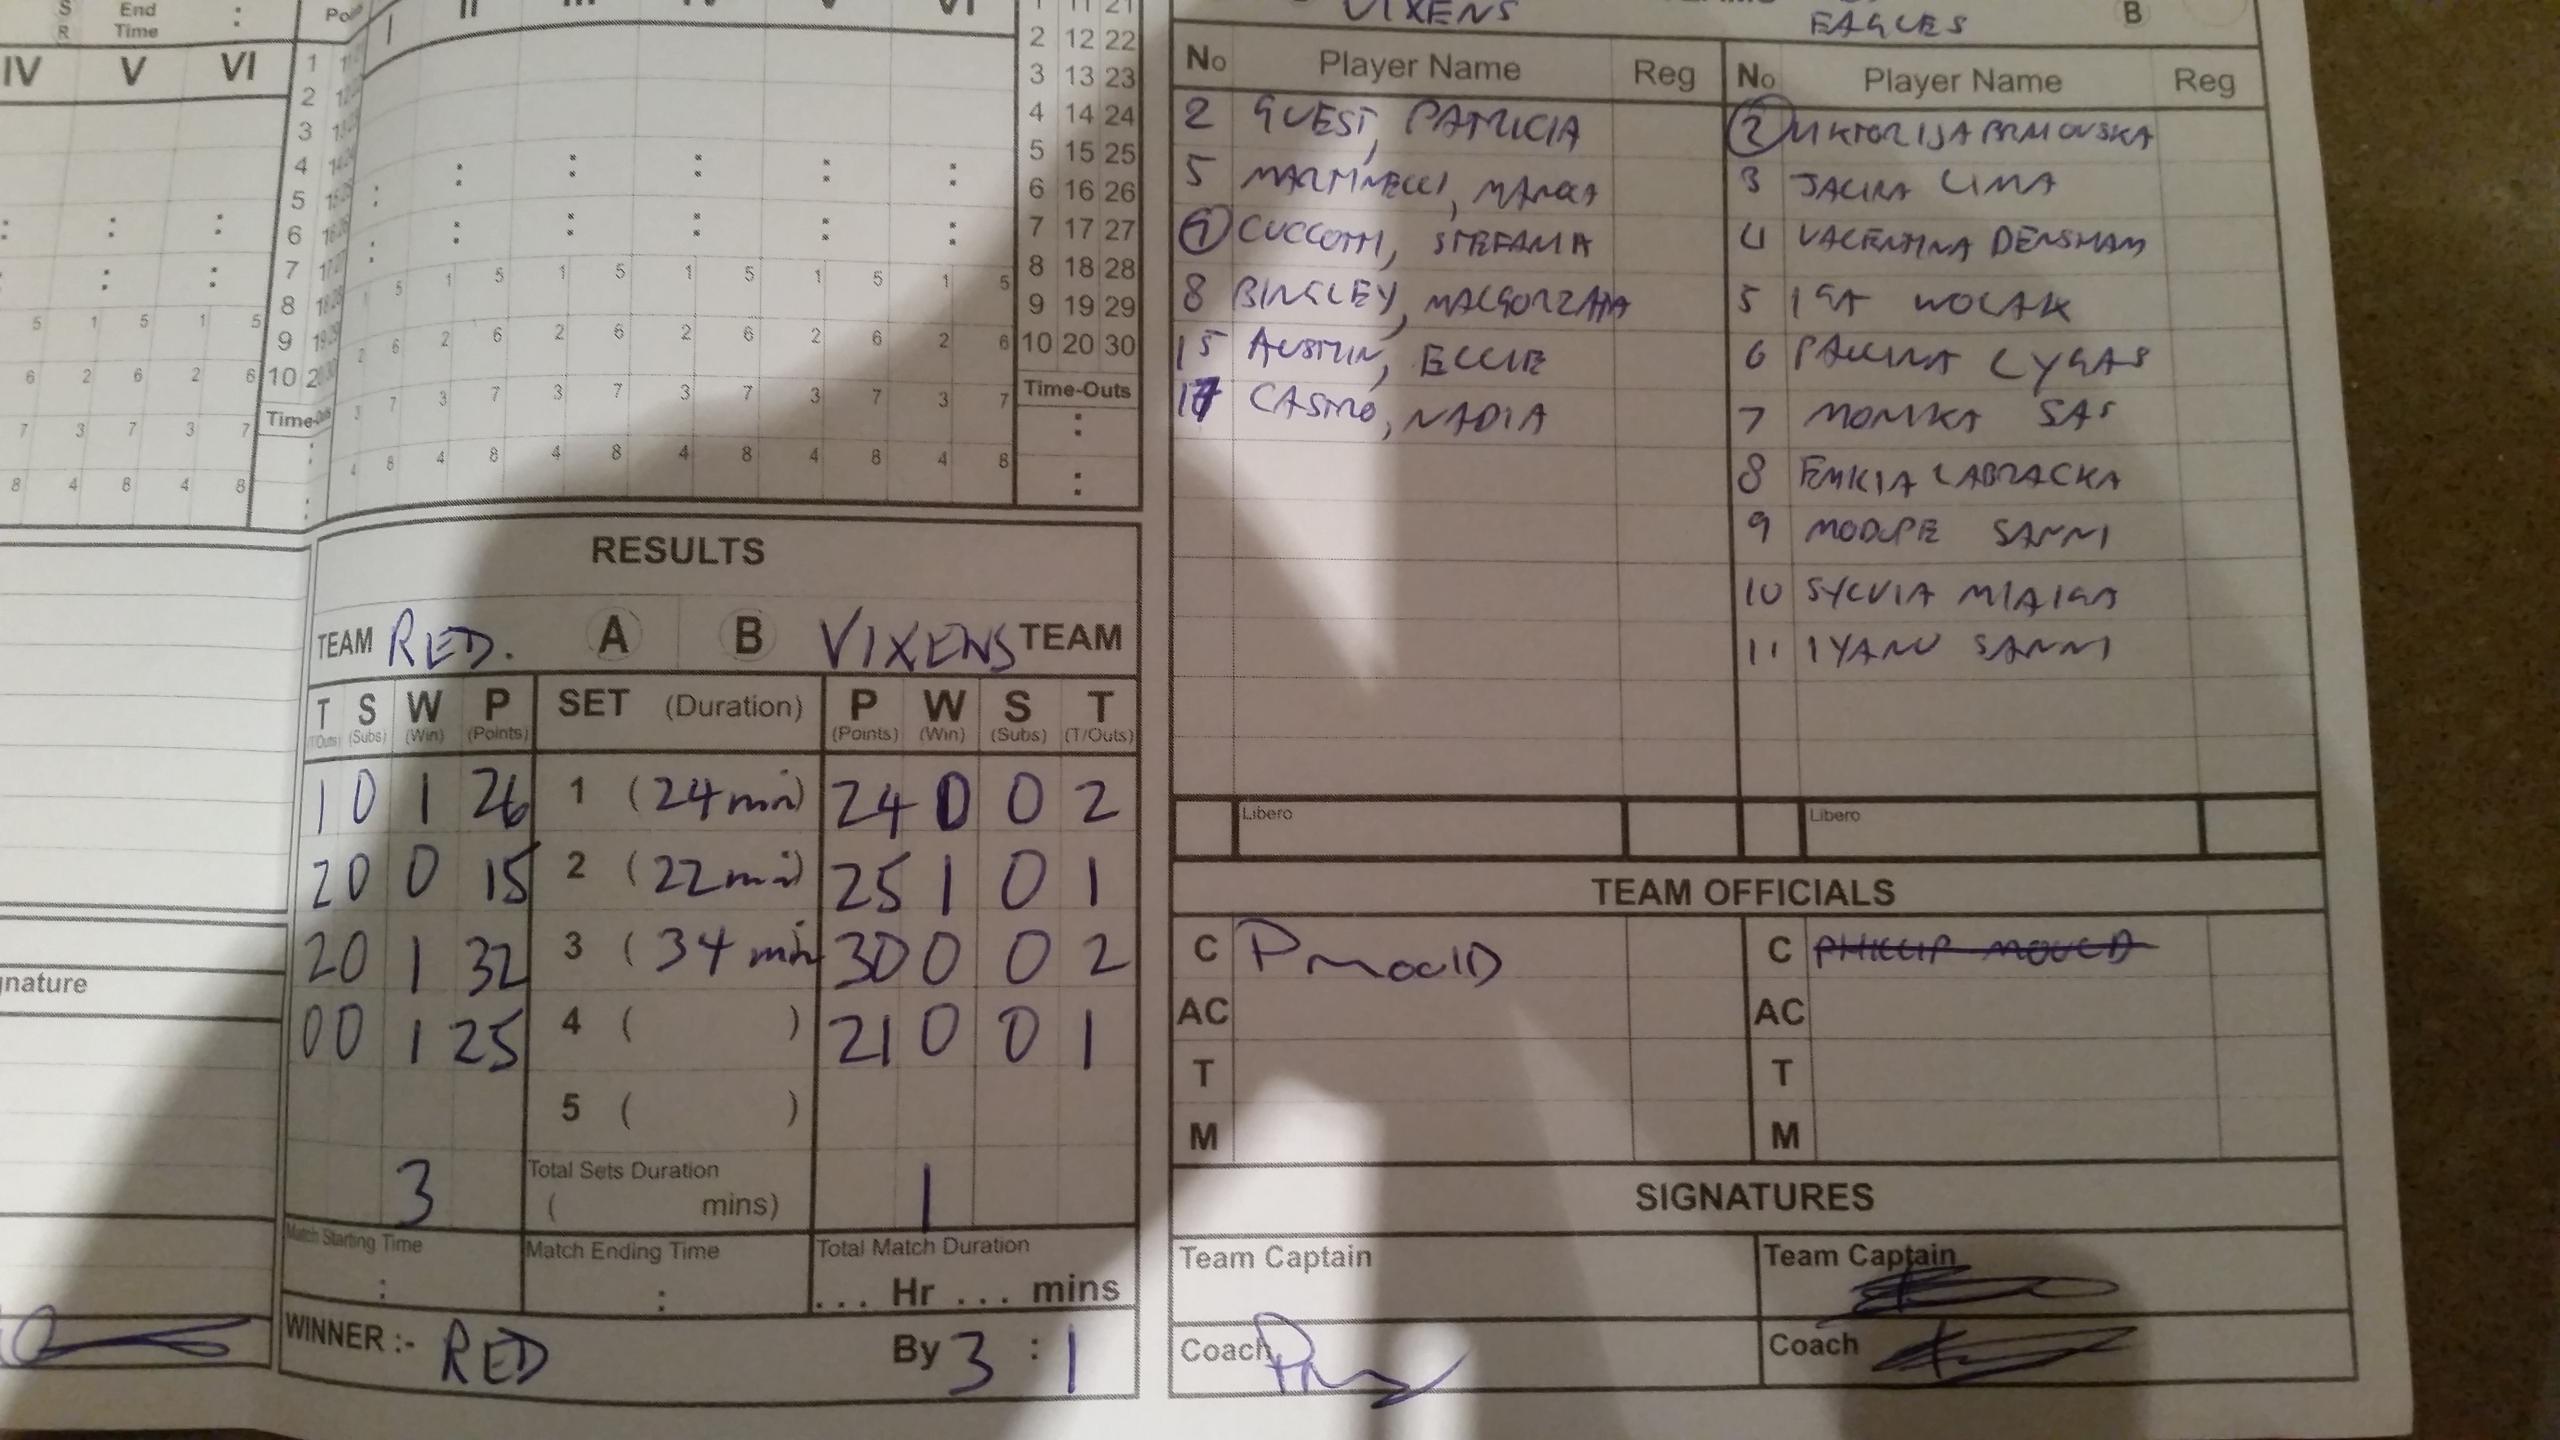 S End
R Time :
IV V VI
Point
I II III IV V VI
1 11 21
2 12 22
3 13 23
4 14 24
5 15 25
6 16 26
7 17 27
8 18 28
9 19 29
10 20 30
Time-Outs
:
:
1 5 1 5 1 5 1 5 1 5
2 6 2 6 2 6 2 6 2 6
3 7 3 7 3 7 3 7 3 7
4 8 4 8 4 8 4 8 4 8
RESULTS
TEAM RED. A B VIXENS TEAM
T S W P SET (Duration) P W S T
(T/Outs) (Subs) (Win) (Points) (Points) (Win) (Subs) (T/Outs)
1 0 1 26 1 (24 min) 24 0 0 2
2 0 0 15 2 (22 min) 25 1 0 1
2 0 1 32 3 (34 min 30 0 0 2
0 0 1 25 4 ( ) 21 0 0 1
5 ( )
3 Total Sets Duration 1
( mins)
Match Starting Time Match Ending Time Total Match Duration
: : ... Hr ... mins
WINNER :- RED By 3 : 1
VIXENS EAGLES B
No Player Name Reg No Player Name Reg
2 GUEST, PATRICIA 2
5 MARTINELLI, 3 LIMA
CUCCOTTI, STEFANIA 4 VALENTINA DENSHAM
8 BINGLEY, MALGORZATA 5 IGA WOLAK
15 AUSTIN, ELLIE 6 PAULINA LYGAS
17 CASTRO, NADIA 7 MONIKA SAS
8
9 MODUPE SANNI
10 SYLVIA
11 IYANU SANNI
Libero Libero
TEAM OFFICIALS
C P mould C PHILLIP MOULD
AC AC
T T
M M
SIGNATURES
Team Captain Team Captain
Coach Coach